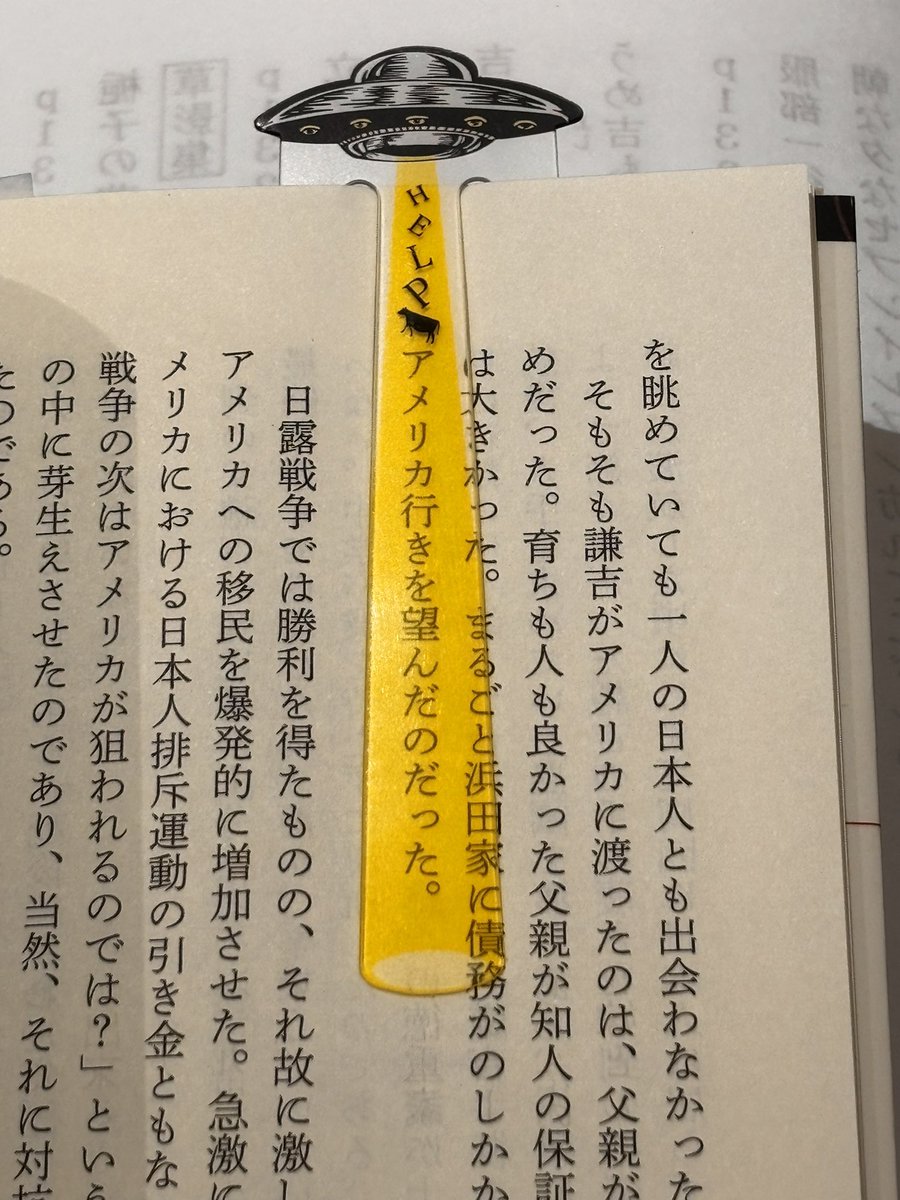 HELP
を眺めていても一人の日本人とも出会わなかった
そもそも謙吉がアメリカに渡ったのは、父親が
めだった。育ちも人も良かった父親が知人の保証
は大きかった。まるごと浜田家に債務がのしかか
アメリカ行きを望んだのだった。
日露戦争では勝利を得たものの、それ故に激し
アメリカへの移民を爆発的に増加させた。急激に
メリカにおける日本人排斥運動の引き金ともな
戦争の次はアメリカが狙われるのでは?」という
の中に芽生えさせたのであり、当然、それに対抗
たのである。